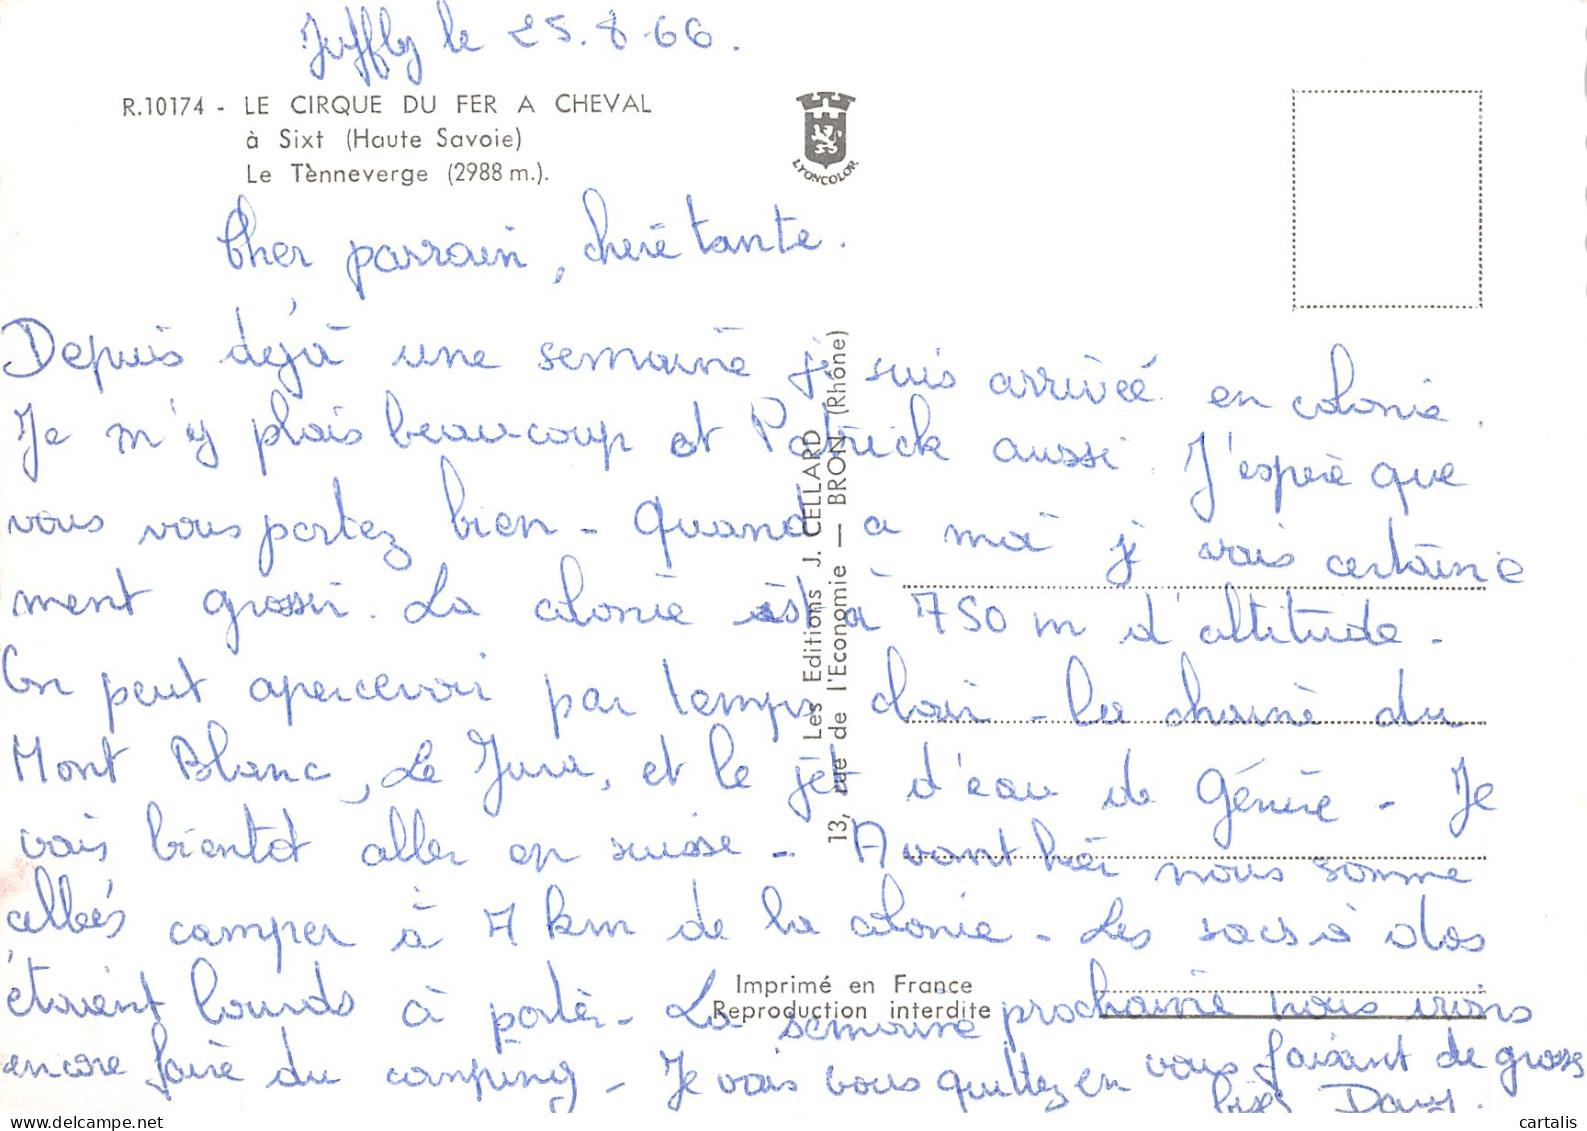 Juffly le 25.8.66.
R.10174 - LE CIRQUE DU FER A CHEVAL
à Sixt (Haute Savoie)
Le Tènneverge (2988 m.).
LYONCOLOR
Cher parrain, chere tante.
Depuis déjà une semaine je suis arrivée en colonie.
Je m'y plais beaucoup et Patrick aussi. J'espère que
vous vous portez bien - Quand a moi je vais certaine
ment grossir. La colonie est à 750 m d'altitude -
On peut apercevoir par temps clair - la chaine du
Mont Blanc, Le Jura, et le jet d'eau de Génève - Je
vais bientot aller en suisse - Avant hier nous somme
allées camper à 7 km de la colonie - Les sacs à dos
étaient lourds à porter - La semaine prochaine nous irons
encore faire du camping - Je vais vous quittez en vous faisant de grosses
bises
13, rue de l'Economie — BRON (Rhône)
Les Editions J. CELLARD
Imprimé en France
Reproduction interdite
www.delcampe.net
cartalis